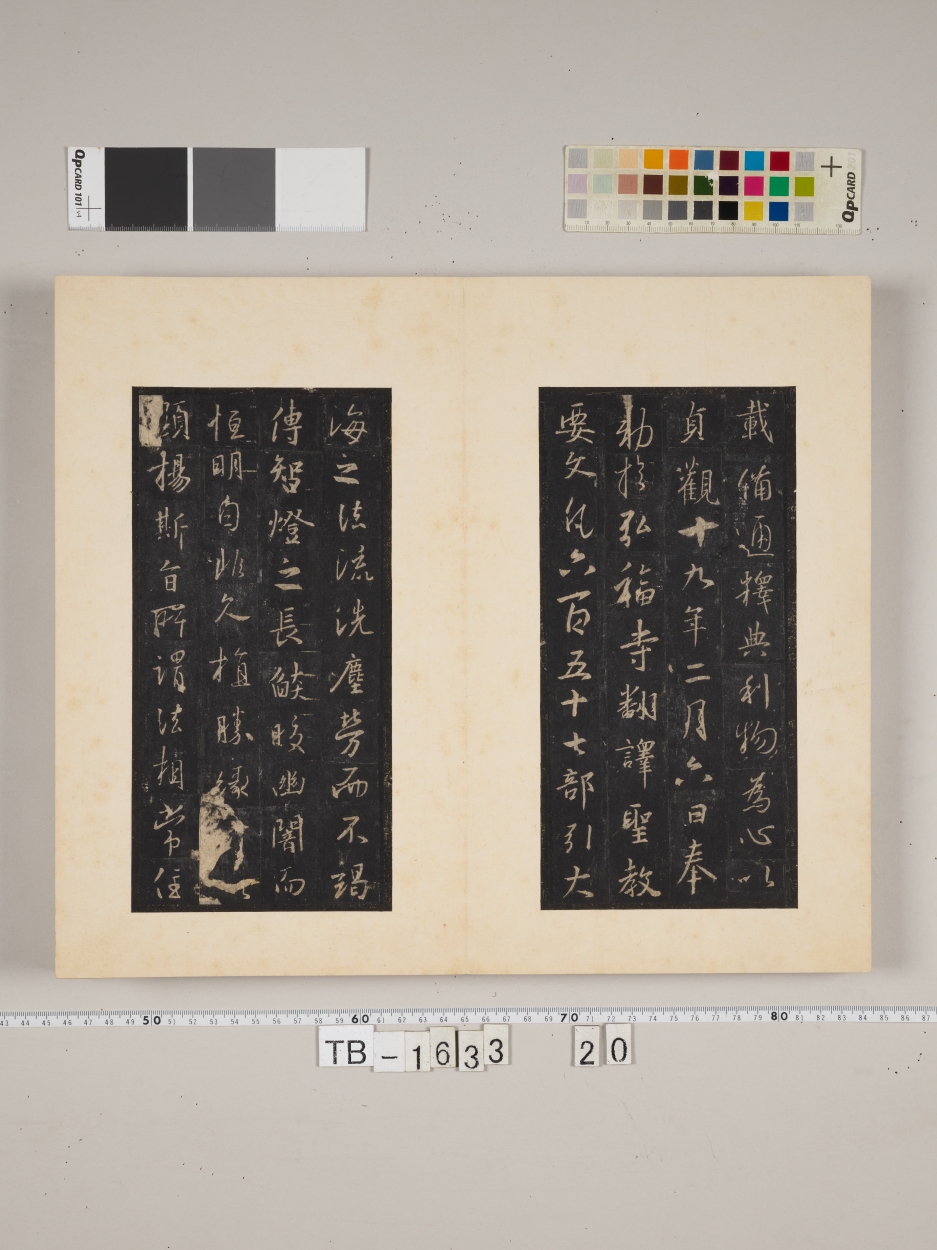 載備通釋典利物為心以
貞觀十九年二月六日奉
勅於弘福寺翻譯聖教
要文凡六百五十七部引大
海之法流洗塵勞而不竭
傳智燈之長焰皎幽闇而
恒明自非久植勝緣以
顯揚斯旨所謂法相常住
QPCARD 101 v4
QPCARD 201
43 44 45 46 47 48 49 50 51 52 53 54 55 56 57 58 59 60 61 62 63 64 65 66 67 68 69 70 71 72 73 74 75 76 77 78 79 80 81 82 83 84 85 86 87
TB-1633 20